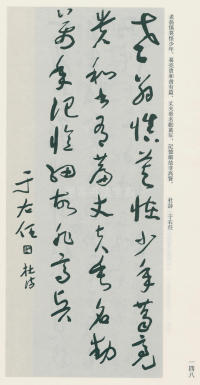 老翁慎莫怪少年,葛亮貴和書有篇,丈夫垂名動萬年,記憶細故非高賢。 杜詩 于右任
老翁慎莫怪少年葛亮
貴和書有篇丈夫垂名動
萬年記憶細故非高賢
于右任 杜詩
一四八